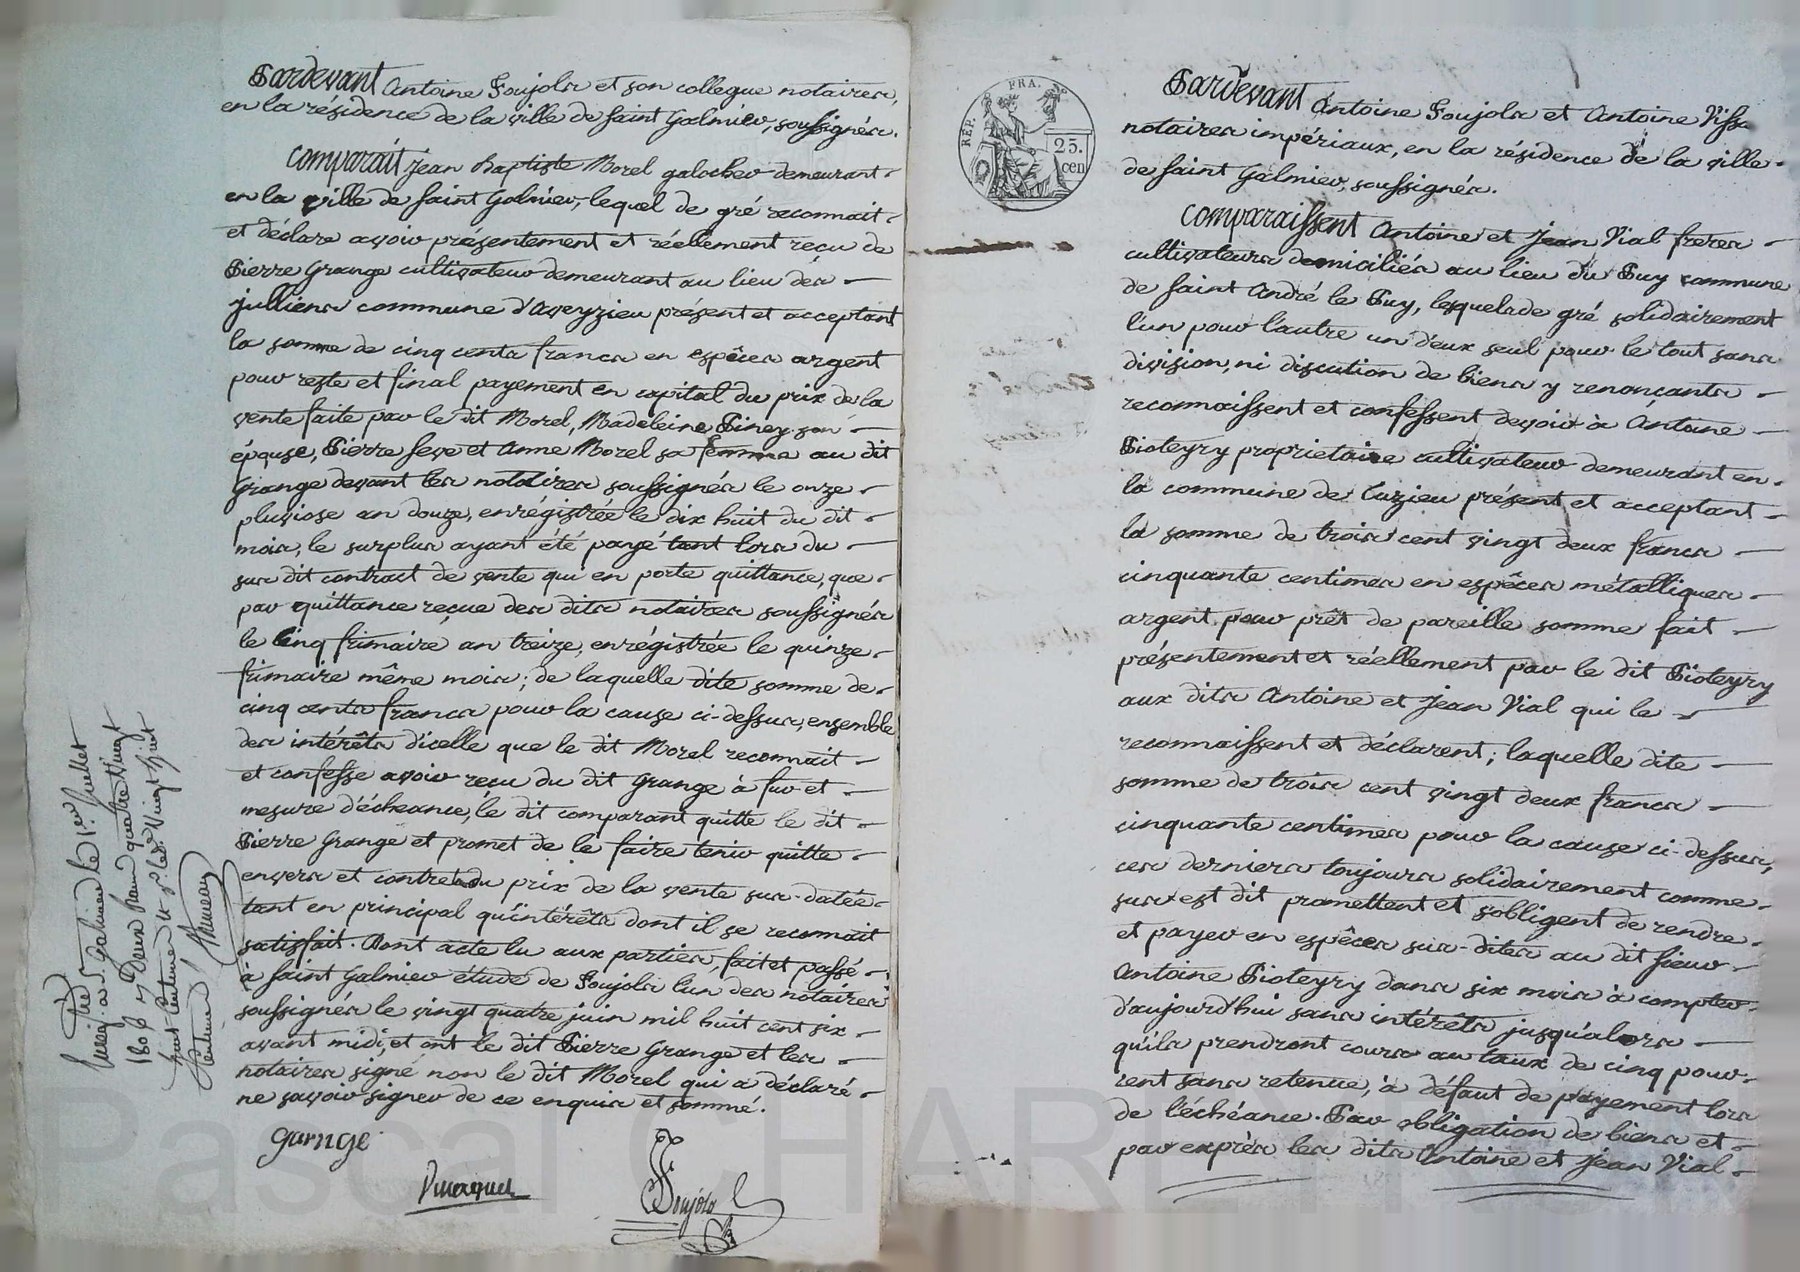 Pardevant Antoine Poujols et son collegue notaires,
en la résidence de la ville de saint Galmier, soussignés.
Comparait Jean Baptiste Morel galocher demeurant
en la ville de saint Galmier, lequel de gré reconnait
et déclare avoir présentement et réellement reçu de
Pierre Grange cultivateur demeurant au lieu des
julliens commune d'aveyzieu présent et acceptant
la somme de cinq cents francs en espêces argent
pour reste et final payement en capital du prix de la
vente faite par le dit Morel, Madeleine Piney son
épouse, Pierre seve et Anne Morel sa femme au dit
Grange devant les notaires soussignés le onze
pluviose an douze, enrégistrée le dix huit du dit
mois, le surplus ayant été payé tant lors du
sus dit contract de vente qui en porte quittance, que
par quittance reçue des dits notaires soussignés
le cinq frimaire an treize, enrégistrée le quinze
frimaire même mois; de laquelle dite somme de
cinq cents francs pour la cause ci-dessus, ensemble
des intérêts d'icelle que le dit Morel reconnait
et confesse avoir reçu du dit Grange à fur et
mesure d'écheance, le dit comparant quitte le dit
Pierre Grange et promet de le faire tenir quitte
envers et contre du prix de la vente sus-datée
tant en principal qu'intérêts dont il se reconnait
satisfait. Dont acte lu aux parties, fait et passé
à saint Galmier étude de Poujols l'un des notaires
soussignés le vingt quatre juin mil huit cent six
avant midi, et ont le dit Pierre Grange et les
notaires signé non le dit Morel qui a déclaré
ne savoir signer de ce enquis et sommé.
garnge
Poujols
Enreg. à St Galmier le 1er Juillet
1806
RÉP. FRA.
25.
cen
Pardevant Antoine Poujols et Antoine
notaires impériaux, en la résidence de la ville
de saint Galmier, soussignés.
Comparaissent Antoine et Jean Vial freres
cultivateurs domiciliés au lieu du Puy commune
de saint André le Puy, lesquels de gré solidairement
l'un pour l'autre un d'eux seul pour le tout sans
division, ni discution de biens y renonçants
reconnaissent et confessent devoir à Antoine
Pioteyry proprietaire cultivateur demeurant en
la commune de Cuzieu présent et acceptant
la somme de trois cent vingt deux francs
cinquante centimes en espêces métalliques
argent, pour prêt de pareille somme fait
présentement et réellement par le dit Pioteyry
aux dits Antoine et Jean Vial qui le
reconnaissent et déclarent; laquelle dite
somme de trois cent vingt deux francs
cinquante centimes pour la cause ci-dessus,
ces derniers toujours solidairement comme
sus est dit promettent et s'obligent de rendre
et payer en espêces sus-dites au dit sieur
Antoine Pioteyry dans six mois à compter
d'aujourd'hui sans intérêts jusqu'alors
qu'ils prendront cours au taux de cinq pour
cent sans retenue, à défaut de payement lors
de l'échéance. Par obligation de biens et
par exprès les dits Antoine et Jean Vial
Pascal CHARLEYRON